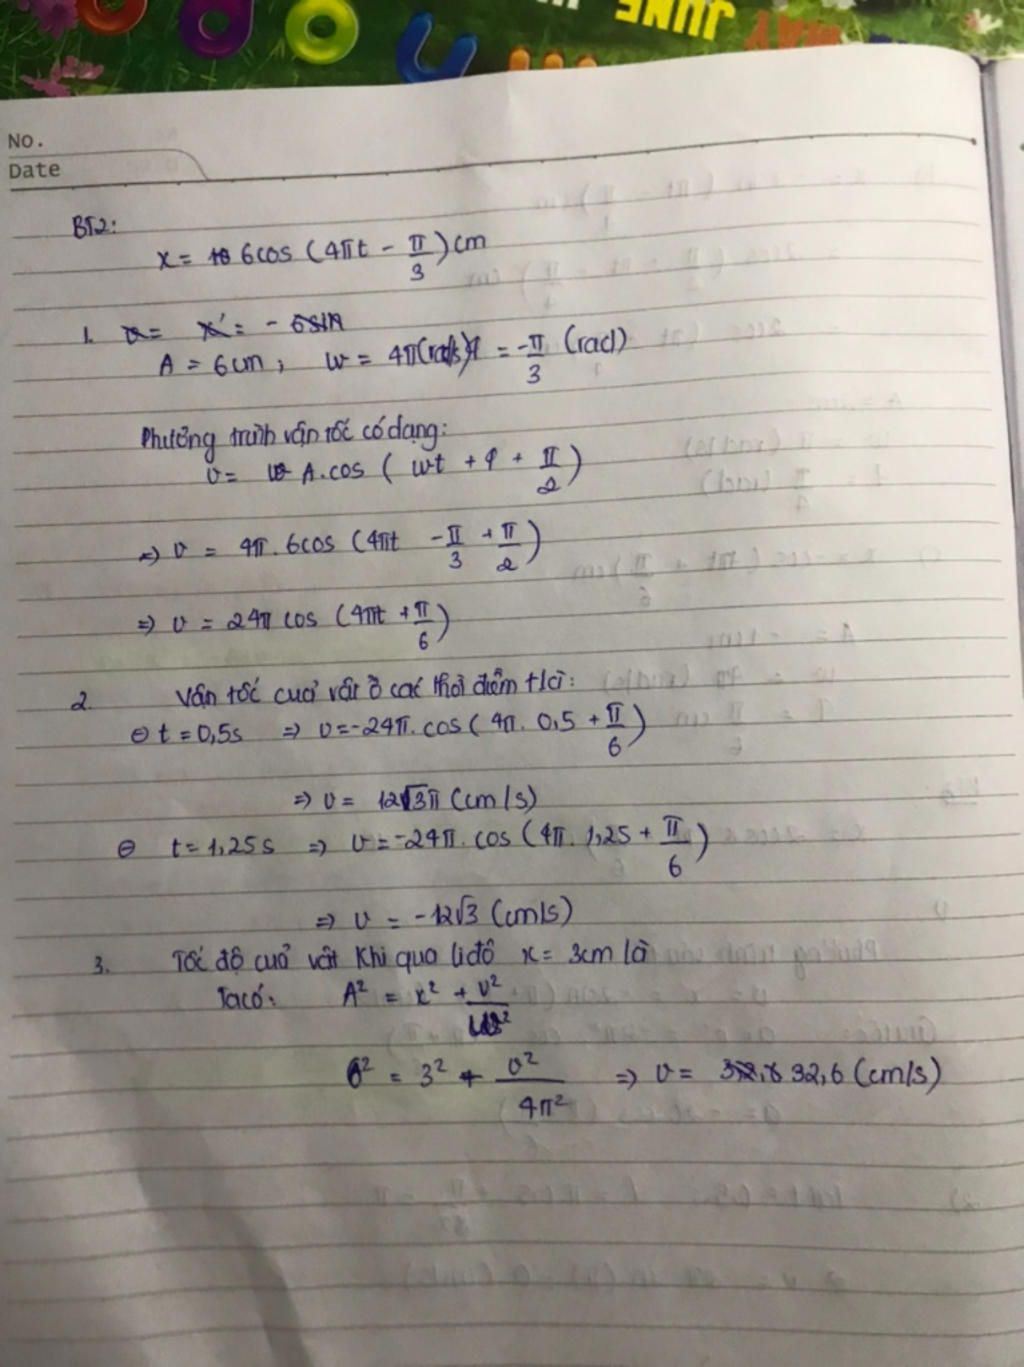 JUNE
MAY
No.
Date
BT2:
x = 6cos (4πt - π/3) cm
1. x' = - 6sin
A = 6cm ; ω = 4π(rad/s) φ = -π/3 (rad)
Phương trình vận tốc có dạng:
v = ω A.cos ( ωt + φ + π/2 )
=> v = 4π . 6cos (4πt - π/3 + π/2 )
=> v = 24π cos (4πt + π/6 )
2. Vận tốc của vật ở các thời điểm t là:
⊖ t = 0,5s => v = -24π. cos ( 4π. 0,5 + π/6 )
=> v = 12√3π (cm/s)
⊖ t = 1,25s => v = -24π. cos (4π. 1,25 + π/6 )
=> v = -12√3 (cm/s)
3. Tốc độ của vật khi qua li độ x = 3cm là
Ta có: A² = x² + v²/ω²
6² = 3² + v²/4π² => v = 32,6 (cm/s)